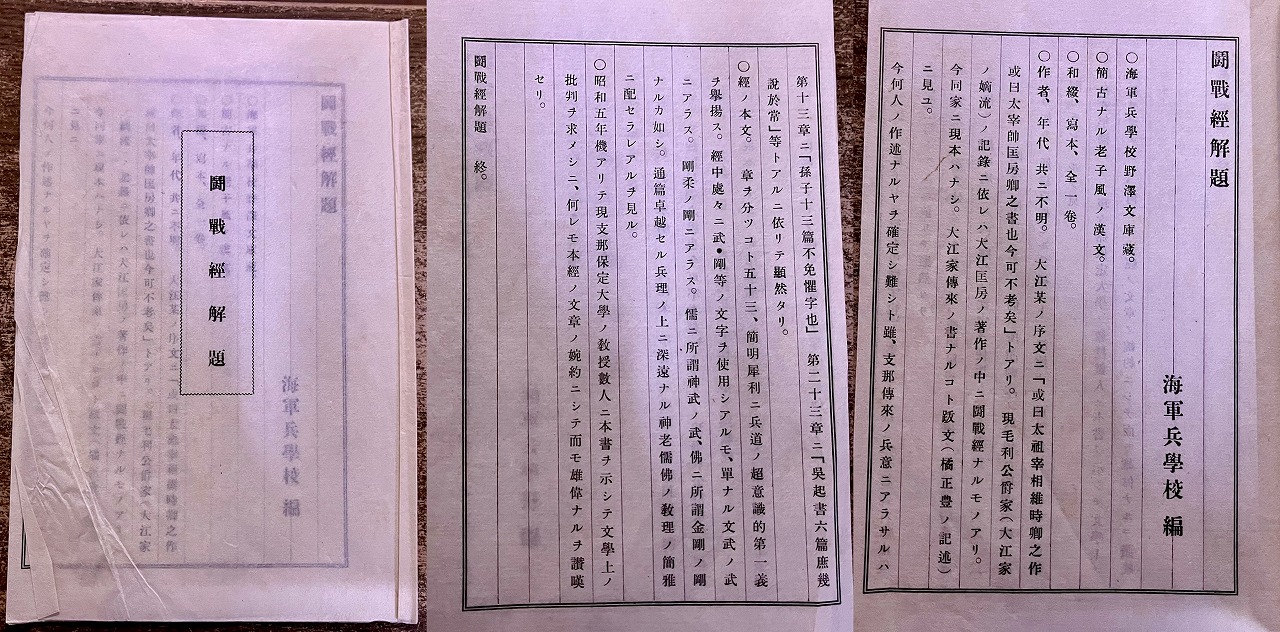 闘戰經解題
海軍兵學校 編
〇海軍兵學校野澤文庫藏。
〇簡古ナル老子風ノ漢文。
〇和綴、寫本、全一卷。
〇作者、年代 共ニ不明。 大江某ノ序文ニ「或曰太祖宰相維時卿之作
或曰太宰帥匡房卿之書也今可不考矣」トアリ。 現毛利公爵家(大江家
ノ嫡流)ノ記錄ニ依レハ大江匡房ノ著作ノ中ニ闘戰經ナルモノアリ。
今同家ニ現本ハナシ。大江家傳來ノ書ナルコト跋文(橘正豊ノ記述)
ニ見ユ。
今何人ノ作述ナルヤヲ確定シ難シト雖、支那傳來ノ兵意ニアラサルハ
第十三章ニ「孫子十三篇不免懼字也」 第二十三章ニ「吳起書六篇庶幾
說於常」等トアルニ依リテ顯然タリ。
經ノ本文。 章ヲ分ツコト五十三、簡明犀利ニ兵道ノ超意識的第一義
ヲ擧揚ス。經中處々ニ武・剛等ノ文字ヲ使用シアルモ、單ナル文武ノ武
ニアラス。 剛柔ノ剛ニアラス。儒ニ所謂神武ノ武、佛ニ所謂金剛ノ剛
ナルカ如シ。通篇卓越セル兵理ノ上ニ深遠ナル神老儒佛ノ敎理ノ簡雅
ニ配セラレアルヲ見ル。
〇昭和五年機アリテ現支那保定大學ノ敎授數人ニ本書ヲ示シテ文學上ノ
批判ヲ求メシニ、何レモ本經ノ文章ノ婉約ニシテ而モ雄偉ナルヲ讃嘆
セリ。
闘戰經解題 終。
闘戰經解題